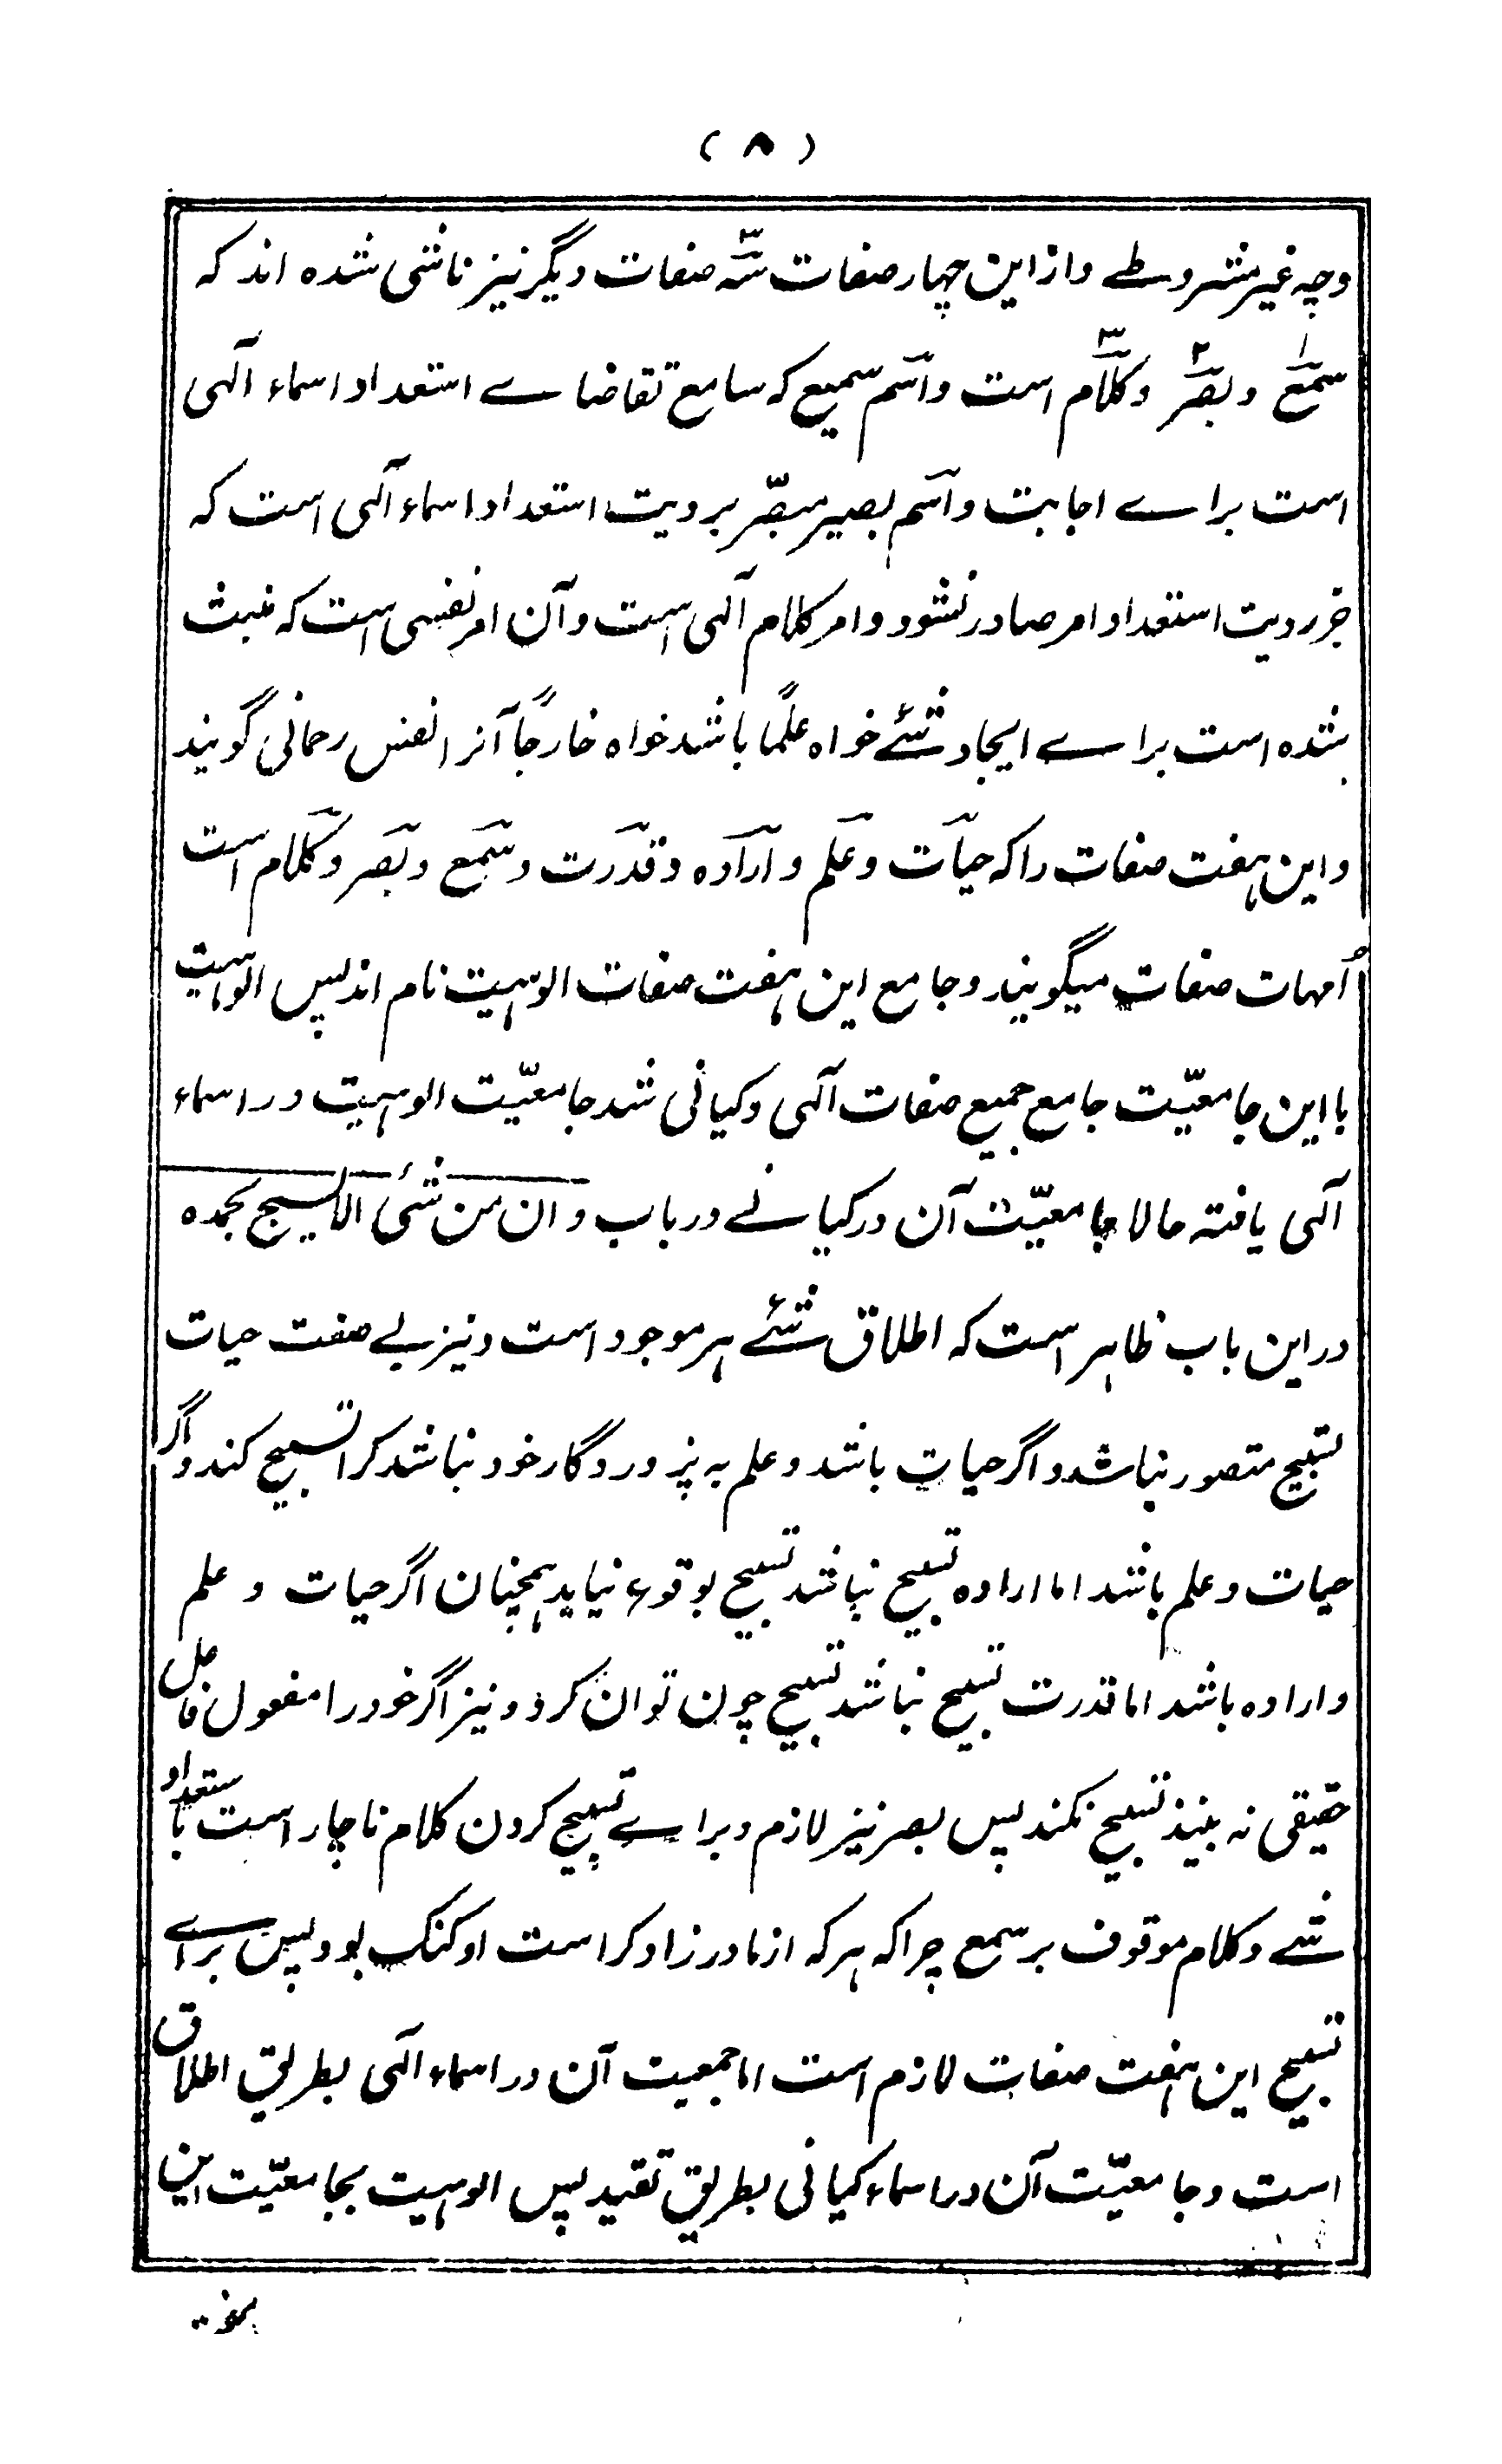 (۸)
وجہ غیر مشروطے وازاین چہار صفات سہ صفات دیگر نیز ناشی شدہ اند کہ
سمع و بصر و کلام است واسم سمیع کہ سامع تقاضاے استعداد اسماء الٰہی
است براے اجابت واسم بصیر مبصّر برویت استعداد اسماء الٰہی است کہ
جز رویت استعداد امر صادر نشود وامر کلام الٰہی است وآن امر نفسی است کہ منبث
شدہ است براے ایجاد شئے خواہ علمًا باشد خواہ خارجًا آنرا نفس رحمانی گویند
واین ہفت صفات را کہ حیات وعلم وارادہ وقدرت وسمع وبصر وکلام است
اُمہات صفات میگویند وجامع این ہفت صفات الوہیت نام اند پس الوہیت
بااین جامعیّت جامع جمیع صفات الٰہی وکیانی شد جامعیّت الوہیت در اسماء
الٰہی یافتہ حالا جامعیّت آن در کیانے در باب وان من شئ الا یسبح بحمدہ
دراین باب ظاہر است کہ اطلاق شئے ہر موجود است ونیز بے صفت حیات
تسبیح متصور نباشد واگر حیات باشد وعلم بہ پروردگار خود نباشد کرا تسبیح کند واگر
حیات وعلم باشد اما ارادہ تسبیح نباشد تسبیح بوقوع نیاید ہمچنان اگر حیات و علم
وارادہ باشد اما قدرت تسبیح نباشد تسبیح چون توان کرد ونیز اگر خود را مفعول فاعل
حقیقی نہ بیند تسبیح نکند پس بصر نیز لازم وبراے تسبیح کردن کلام ناچار است باستعداد
شے وکلام موقوف بر سمع چرا کہ ہر کہ از مادرزاد کر است او کنک بود پس براے
تسبیح این ہفت صفات لازم است اما جمعیت آن در اسماء الٰہی بطریق اطلاق
است وجامعیّت آن در اسماء کیانی بطریق تقید پس الوہیت بجامعیّت این
ہفت